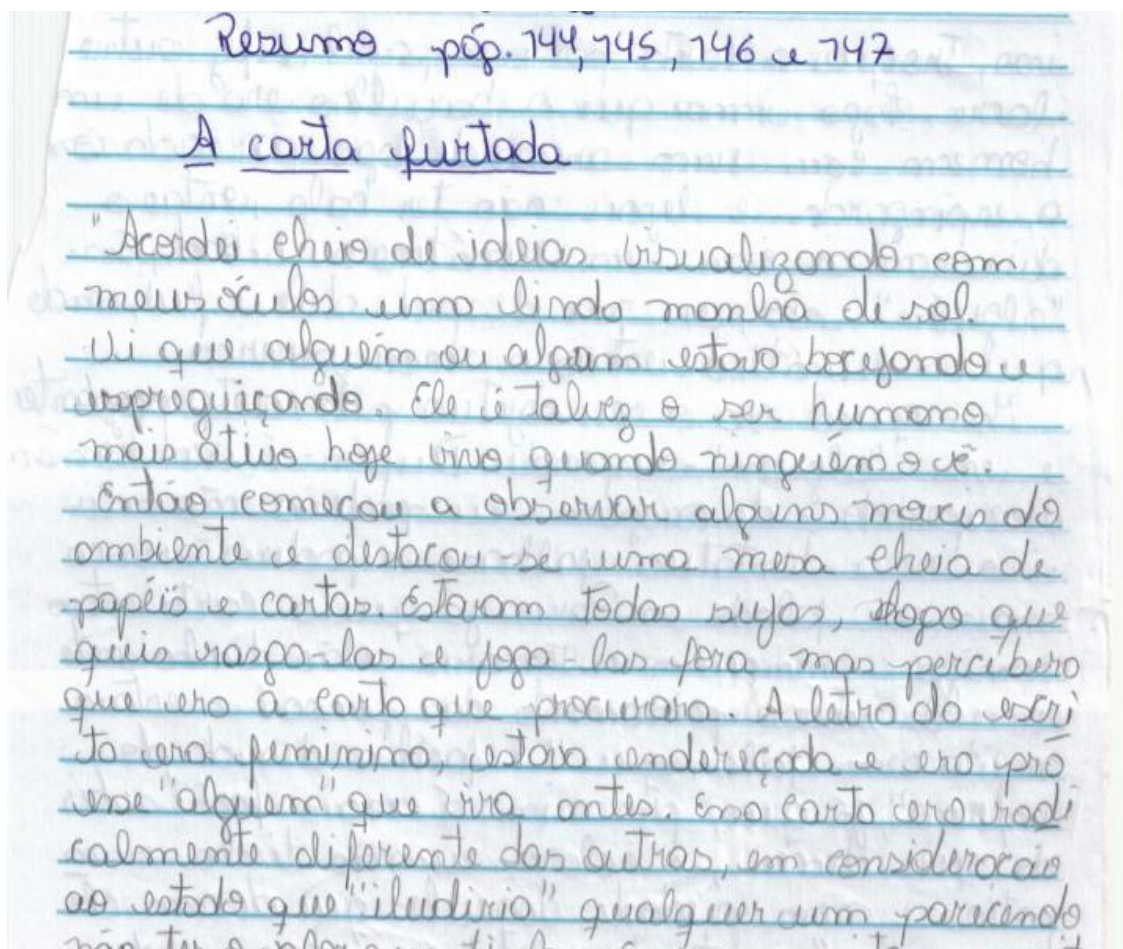 Resumo pág. 144, 145, 146 e 147
A carta furtada
"Acordei cheio de ideias visualizando com
meus óculos uma linda manhã di sol.
Vi que alguém ou algum estava bocejando e
espreguiçando Ele é talvez o ser humano
mais ativo hoje vivo quando ninguém o vê
Então começou a observar alguns do
ambiente e destacou-se uma mesa cheia de
papéis e cartas. Estavam todas sujas, logo que
quis rasga-las e joga-las fora, mas percebera
que era a carta que procurara. A letra da escri
ta era feminina, estava endereçada e era pro
esse "alguém" que vira antes. Essa carta era radi
calmente diferente das outras, em consideracao
ao estado que "iludiria" qualquer um parecendo
não ter o valor que